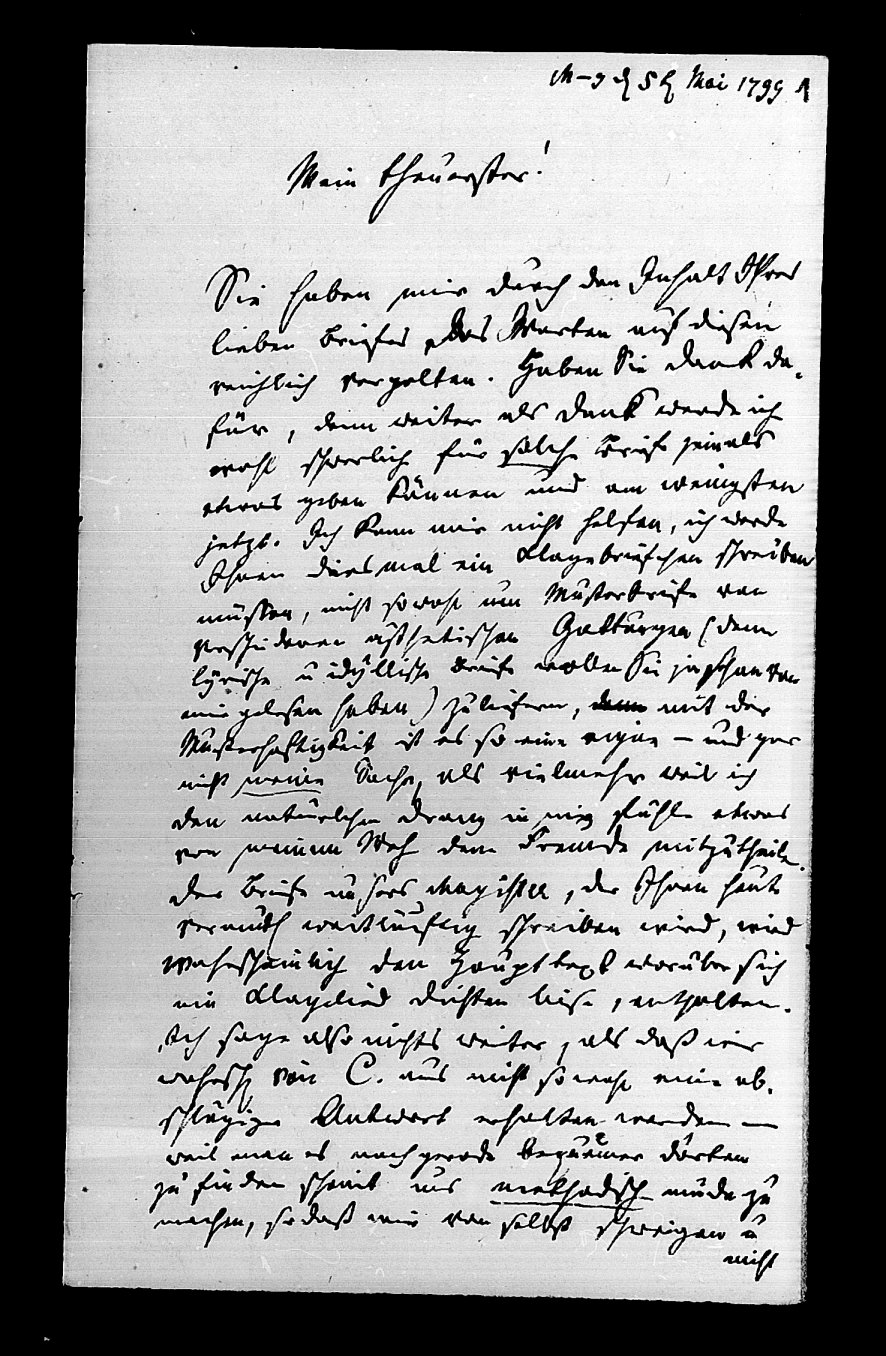 M–g d 5t Mai 1799
Mein theuerster!
Sie haben mir durch den Inhalt Ihres
lieben Briefes das Warten auf diesen
reichlich vergolten. Haben Sie Dank da-
für, denn weiter als Dank werde ich
wohl schwerlich für solche Briefe jemals
etwas geben können und am wenigsten
jetzt. Ich kann mir nicht helfen, ich werde
Ihnen diesmal ein Klagebriefchen schreiben
müssen, nicht sowohl um Musterbriefe von
verschiedenen ästhetischen Gattungen (denn
lyrische u idyllische Briefe wollen Sie ja schon von
mir gelesen haben) zu liefern, denn mit der
Musterhaftigkeit ist es so eine eigne – und gar
nicht meine Sache, als vielmehr weil ich
den natürlichen Drang in mir fühle etwas
von meinem Weh dem Freunde mitzutheilen.
Der Brief unsers Magister, der Ihnen heute
vermuthl weitläuftig schreiben wird, wird
wahrscheinlich den Haupttext worüber sich
ein Klaglied dichten liesse, enthalten.
Ich sage also nichts weiter, als daß wir
wahrsch von C. aus nicht sowohl eine ab-
schlägige Antwort erhalten werden –
weil man es nachgerade bequemer dorten
zu finden scheint uns methodisch müde zu
machen, so daß wir von selbst schweigen u
nicht